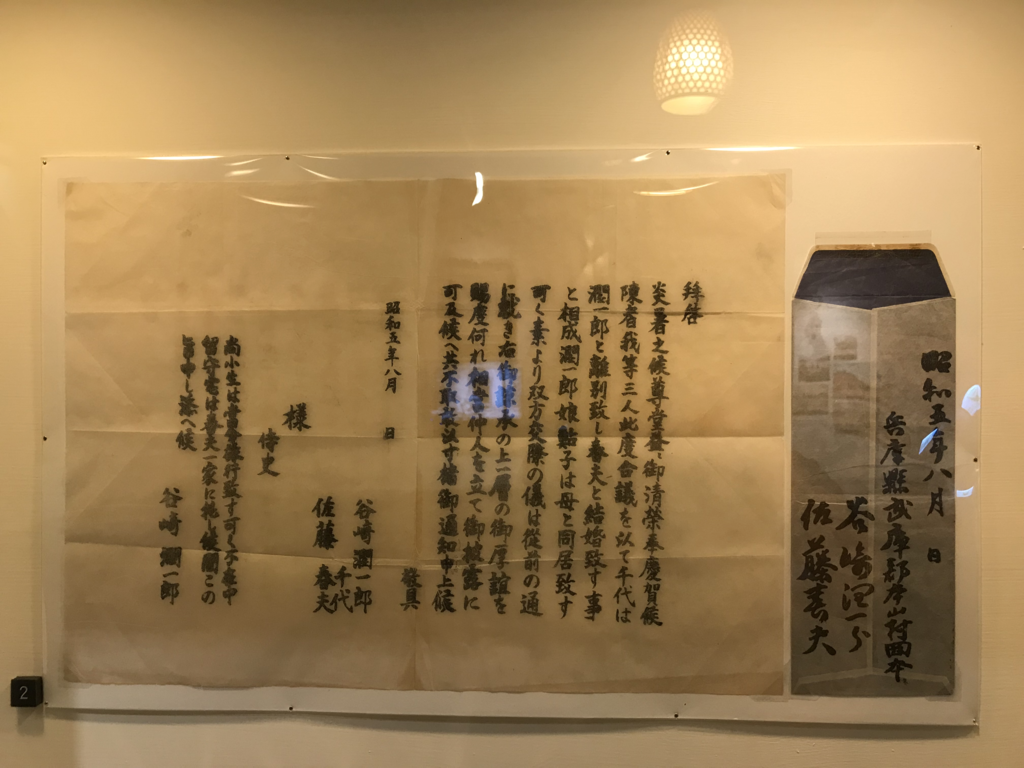 拝啓
炎暑之候尊堂益々御清栄奉慶賀候
陳者我等三人此度合議を以て千代は
潤一郎と離別致し春夫と結婚致す事
と相成潤一郎娘鮎子は母と同居致す
可く素より双方交際の儀は従前の通
に就き右御諒承の上一層の御厚誼を
賜度何れ相当仲人を立て御披露に
可及候へ共不取敢以寸楮御通知申上候
敬具
谷崎潤一郎
千代
佐藤春夫
昭和五年八月 日
様
侍史
尚小生は当分旅行致す可く不在中
留守宅は春夫一家に托し候間この
旨申し添へ候
谷崎潤一郎
昭和五年八月 日
兵庫縣武庫郡岡本
谷崎潤一郎
佐藤春夫
2